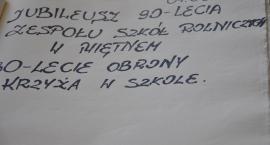 JUBILEUSZ 90-LECIA
ZESPOŁU SZKÓŁ ROLNICZYCH
W MIĘTNEM
30-LECIE OBRONY
KRZYŻA W SZKOLE.